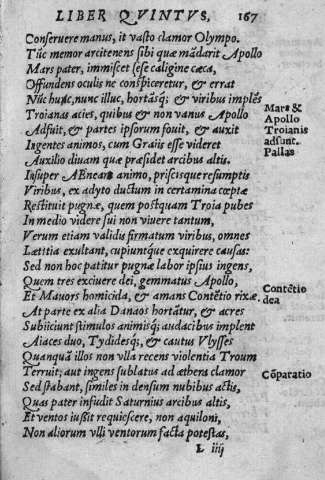 LIBER QVINTVS. 167
Conseruere manus, it vasto clamor Olympo.
Tũc memor arcitenens sibi quæ mãdarit Apollo
Mars pater, immiscet sese caligine cæca,
Offundens oculis ne conspiceretur, & errat
Nũc huc, nunc illuc, hortãsq; & viribus implẽs
Troianas acies, quibus & non vanus Apollo
Adfuit, & partes ipsorum fouit, & auxit
Ingentes animos, cum Graiis esse videret
Auxilio diuam quæ præsidet arcibus altis.
Insuper AEnean animo, priscisque resumptis
Viribus, ex adyto ductum in certamina cœptæ
Restituit pugnæ, quem postquam Troia pubes
In medio videre sui non viuere tantum,
Verum etiam validis firmatum viribus, omnes
Lætitia exultant, cupiuntque exquirere causas:
Sed non hoc patitur pugnæ labor ipsius ingens,
Quem tres exciuere dei, gemmatus Apollo,
Et Mauors homicida, & amans Contẽtio rixæ.
At parte ex alia Danaos hortãtur, & acres
Subiiciunt stimulos animisq; audacibus implent
Aiaces duo, Tydidesq;, & cautus Vlysses
Quanquã illos non vlla recens violentia Troum
Terruit, aut ingens sublatus ad æthera clamor
Sed stabant, similes in densum nubibus actis,
Quas pater infudit Saturnius arcibus altis,
Et ventos iussit requiescere, non aquiloni,
Non aliorum vlli ventorum facta potestas,
L iiij
Mars &
Apollo
Troianis
adsunt.
Pallas
Contẽtio
dea
Cõparatio